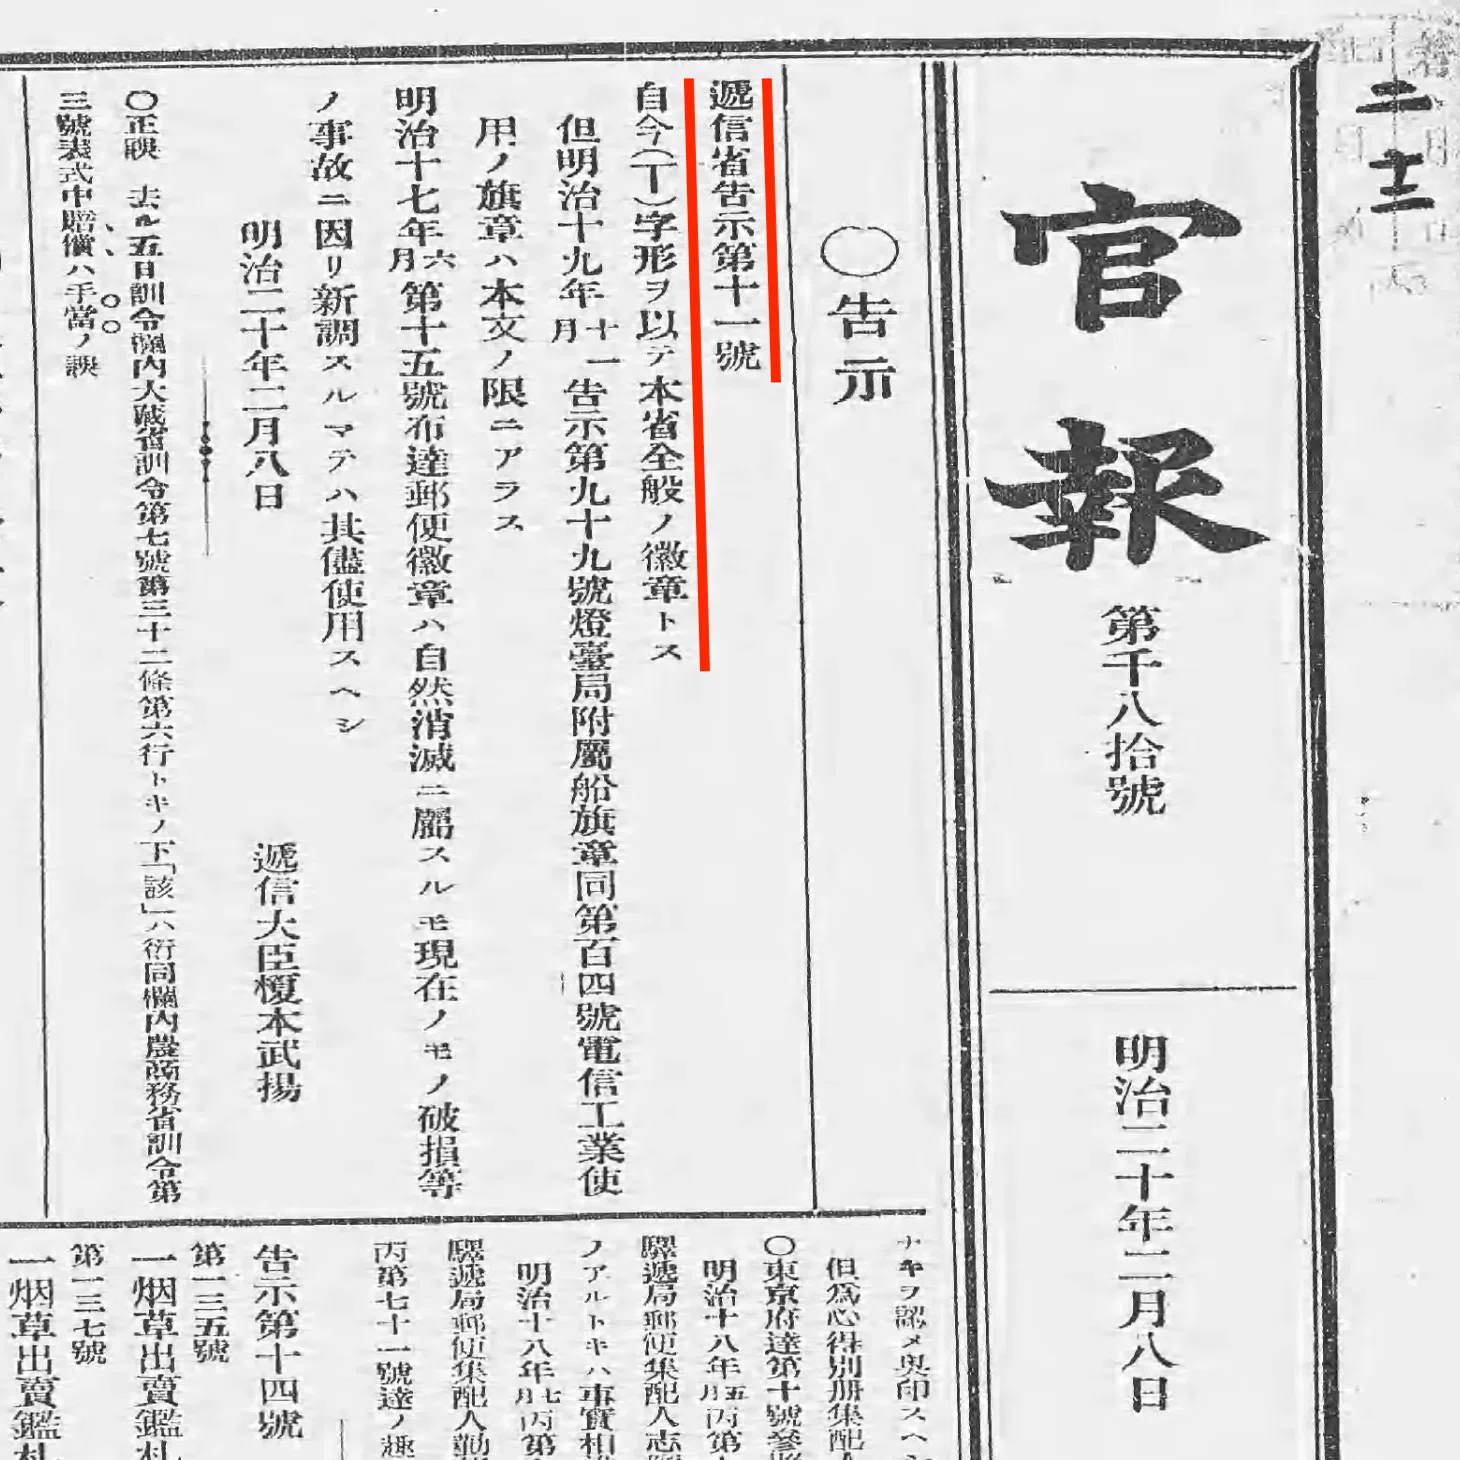 二十二
官報
第千八拾號
明治二十年二月八日
〇告示
遞信省告示第十一號
自今(丅)字形ヲ以テ本省全般ノ徽章トス
但明治十九年十一月告示第九十九號燈臺局附屬船旗章同第百四號電信工業使
用ノ旗章ハ本文ノ限ニアラス
明治十七年六月第十五號布達郵便徽章ハ自然消滅ニ屬スルモ現在ノモノ破損等
ノ事故ニ因リ新調スルマテハ其儘使用スヘシ
明治二十年二月八日
遞信大臣榎本武揚
〇正誤 去ル五日訓令欄内大藏省訓令第七號第三十二條第六行トキノ下「該」ハ衍同欄内農商務省訓令第
三號表式中賠償ハ手當ノ誤
ナキヲ認メ奥印スヘシ
但爲心得別册集配人
〇東京府達第十號參照
明治十八年五月丙第
驛遞局郵便集配人志願
ノアルトキハ事實相
明治十八年七月丙第
驛遞局郵便集配人勤
丙第七十一號達ノ趣
告示第十四號
第一三五號
一烟草出賣鑑札
第一三七號
一烟草出賣鑑札